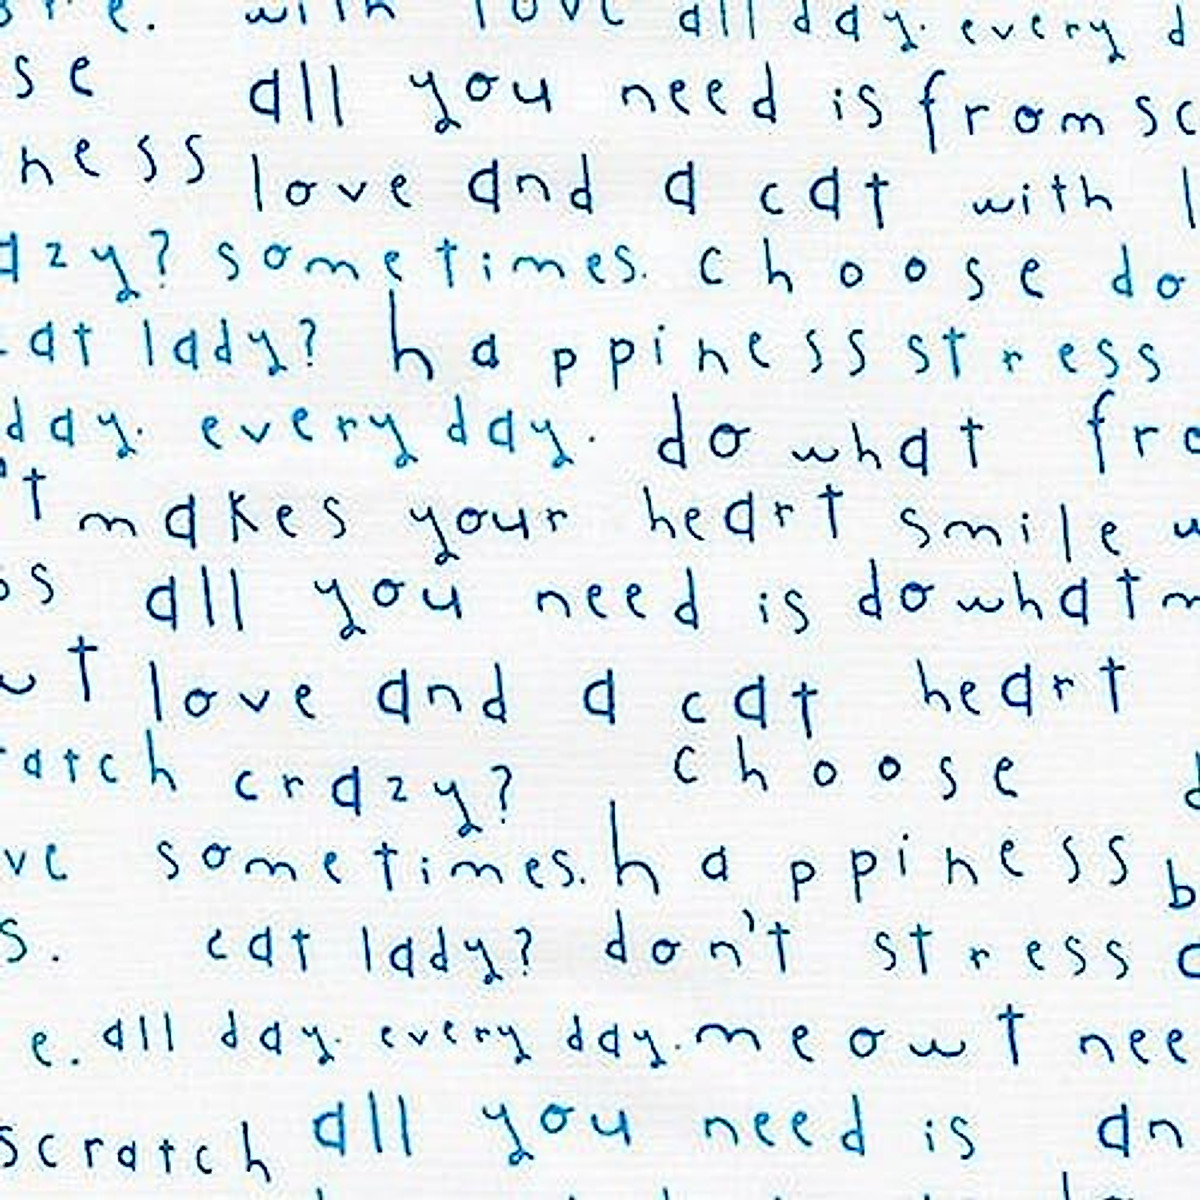 e. with love all day. every d
se all you need is from sc
ness love and a cat with l
azy? sometimes. choose do
at lady? happiness stress
day. every day. do what fro
't makes your heart smile
ss all you need is do what m
wt love and a cat heart
ratch crazy? choose d
ve sometimes. happiness b
s. cat lady? don't stress
e. all day. every day. meowt nee
scratch all you need is an